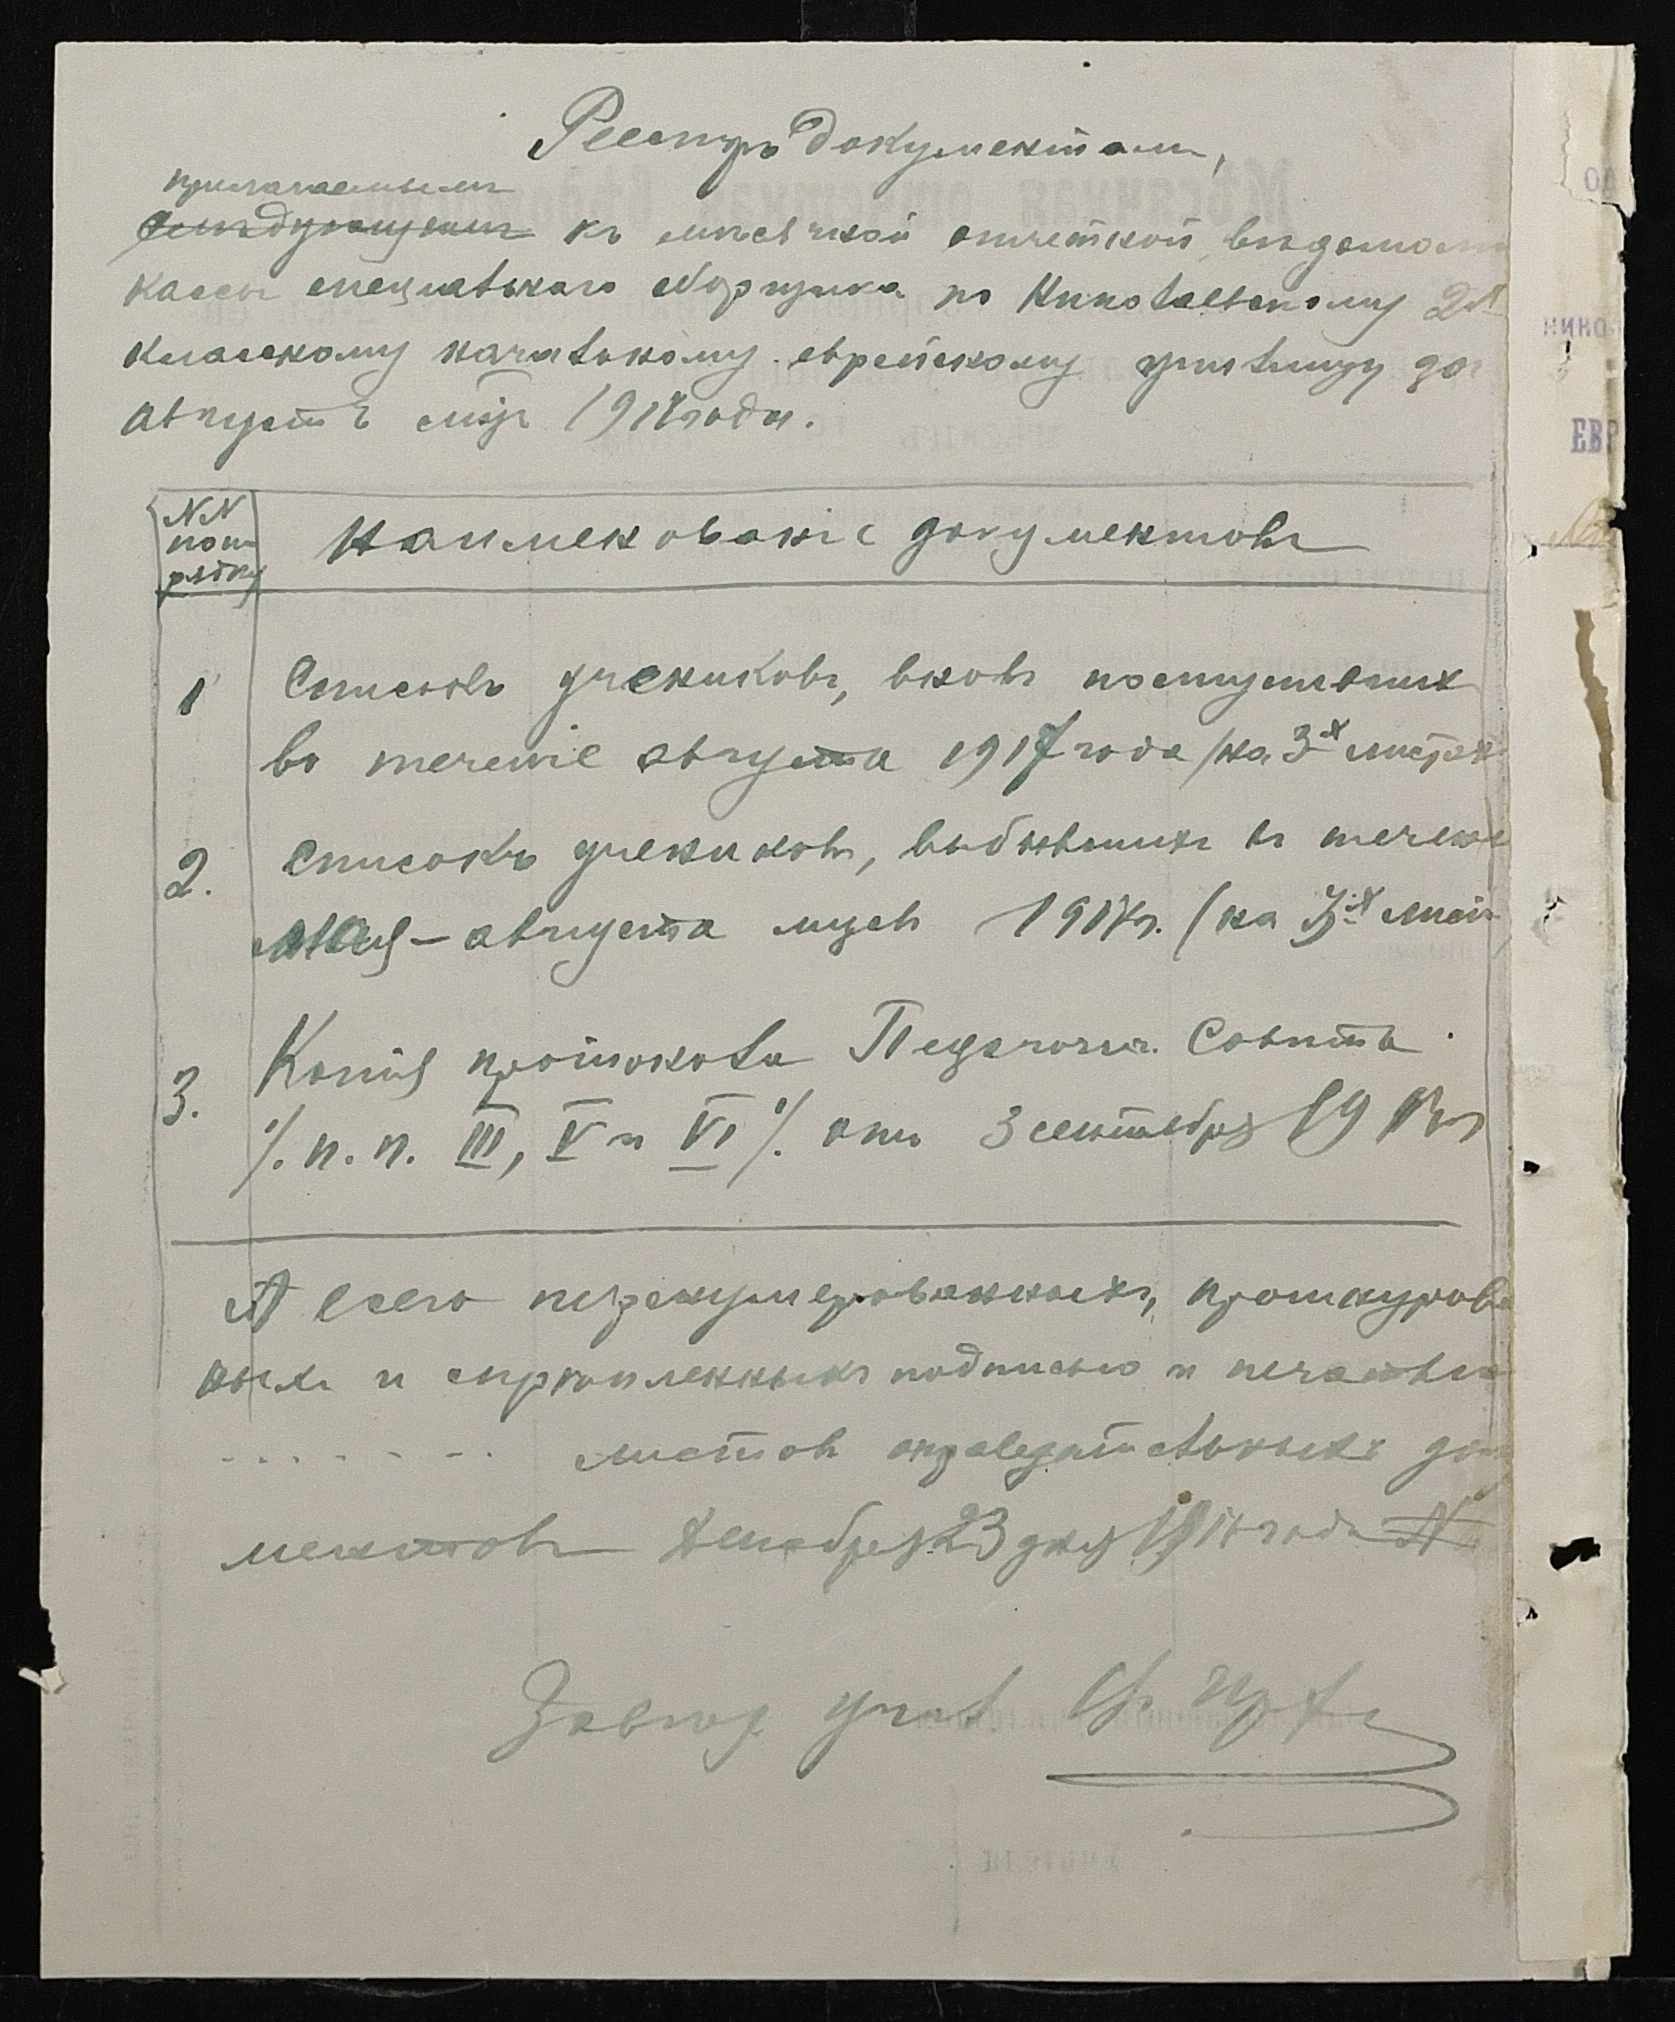 Реестръ документамъ,
прилагаемымъ
слѣдующимъ къ мѣсячной отчетной вѣдомости
кассы спеціальнаго сборщика по Николаевскому 2х
классному начальному еврейскому училищу за
августъ мцъ 1917 года.
NN
по по-
рядку
Наименованіе документовъ
1 Списокъ учениковъ, вновь поступивших
въ теченіе августа 1917 года (на 3х листах
2. Списокъ учениковъ, выбывшихъ въ течение
мая – августа мцевъ 1917 г. (на 3х лист
3. Копія протокола Педагогич. Совѣта
/. п. п. III, V и VI /. отъ 3 сентября 1917 г
А всего перенумерованныхъ, прошнурован
ныхъ и скрѣпленныхъ подписью и печатью
. . . . . . . листовъ оправдательныхъ доку
ментовъ Декабря 23 дня 1917 года
Завѣд учил
НИКО
ЕВР